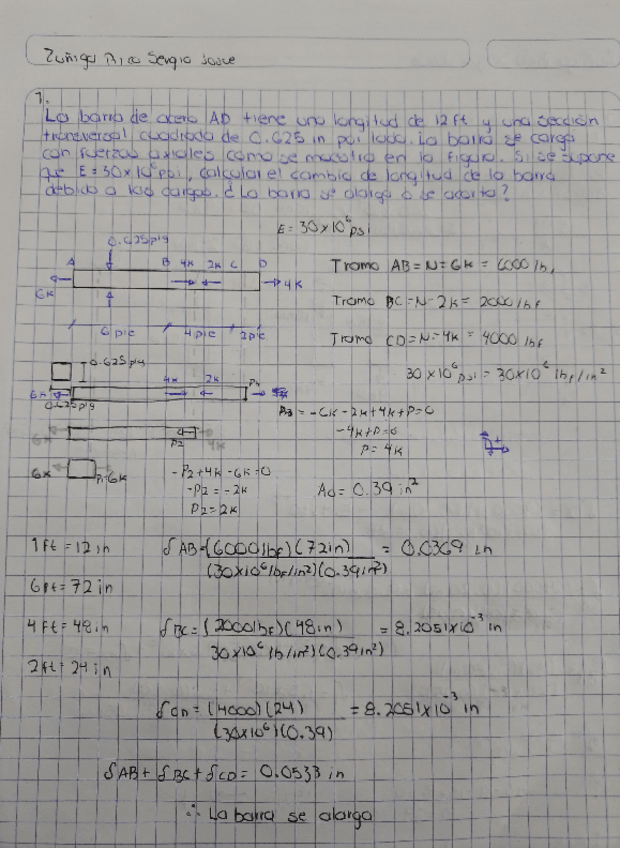 Zuñiga Rico Sergio Josue
1.
La barra de acero AD tiene una longitud de 12 ft y una sección
transversal cuadrada de 0.625 in por lado. La barra se carga
con fuerzas axiales como se muestra en la figura. Si se supone
que E=30x10⁶ psi, calcular el cambio de longitud de la barra
debido a las cargas. ¿La barra se alarga o se acorta?
E=30x10⁶ psi
0.625 plg
A B 4K 2K C D
6K 4K
6 pie 4 pie 2 pie
Tramo AB=N=6K=6000 lbf
Tramo BC=N-2K=2000 lbf
Tramo CD=N-4K=4000 lbf
30x10⁶ psi = 30x10⁶ lbf/in²
0.625 plg
6K 4K 2K
0.625 plg
P3=-6K-2K+4K+P=0
-4K+P=0
P=4K
6K P2 4K
6K P1=6K
-P2+4K-6K=0
-P2=-2K
P2=2K
A0=0.39 in²
1ft=12in
6ft=72in
4ft=48in
2ft=24in
δAB=(6000lbf)(72in) = 0.0369 in
(30x10⁶lbf/in²)(0.39in²)
δBC=(2000lbf)(48in) = 8.2051x10⁻³ in
30x10⁶ lb/in²)(0.39in²)
δCD=(4000)(24) = 8.2051x10⁻³ in
(30x10⁶)(0.39)
δAB+δBC+δCD=0.0533 in
∴ La barra se alarga